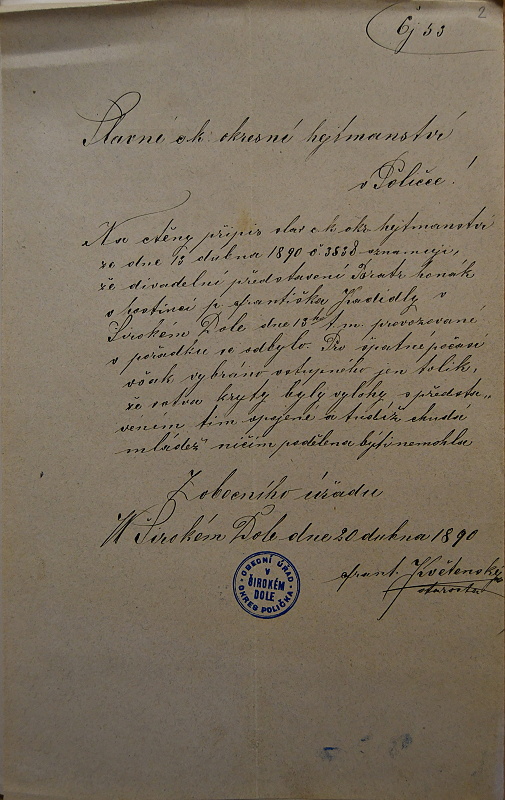 2
Čj 53
Slavné c.k. okresní hejtmanství
v Poličce!
Na ctěný přípis slav. c.k. okr. hejtmanství
ze dne 13 dubna 1890 č. 3838 oznamuji,
že divadelní představení Bratr honák
v hostinci p. Františka Kadidly v
Širokém Dole dne 13ho t.m. provozované
v pořádku se odbylo. Pro špatné počasí
však vybráno vstupného jen tolik,
že sotva kryty byly výlohy s předsta„
vením tím spojené a tudíž chudá
mládež ničím podělena býti nemohla
Z obecního úřadu
V Širokém Dole dne 20 dubna 1890
Frant. Květenský
starosta
OBECNÍ ÚŘAD
V
ŠIROKÉM
DOLE
OKRES POLIČKA